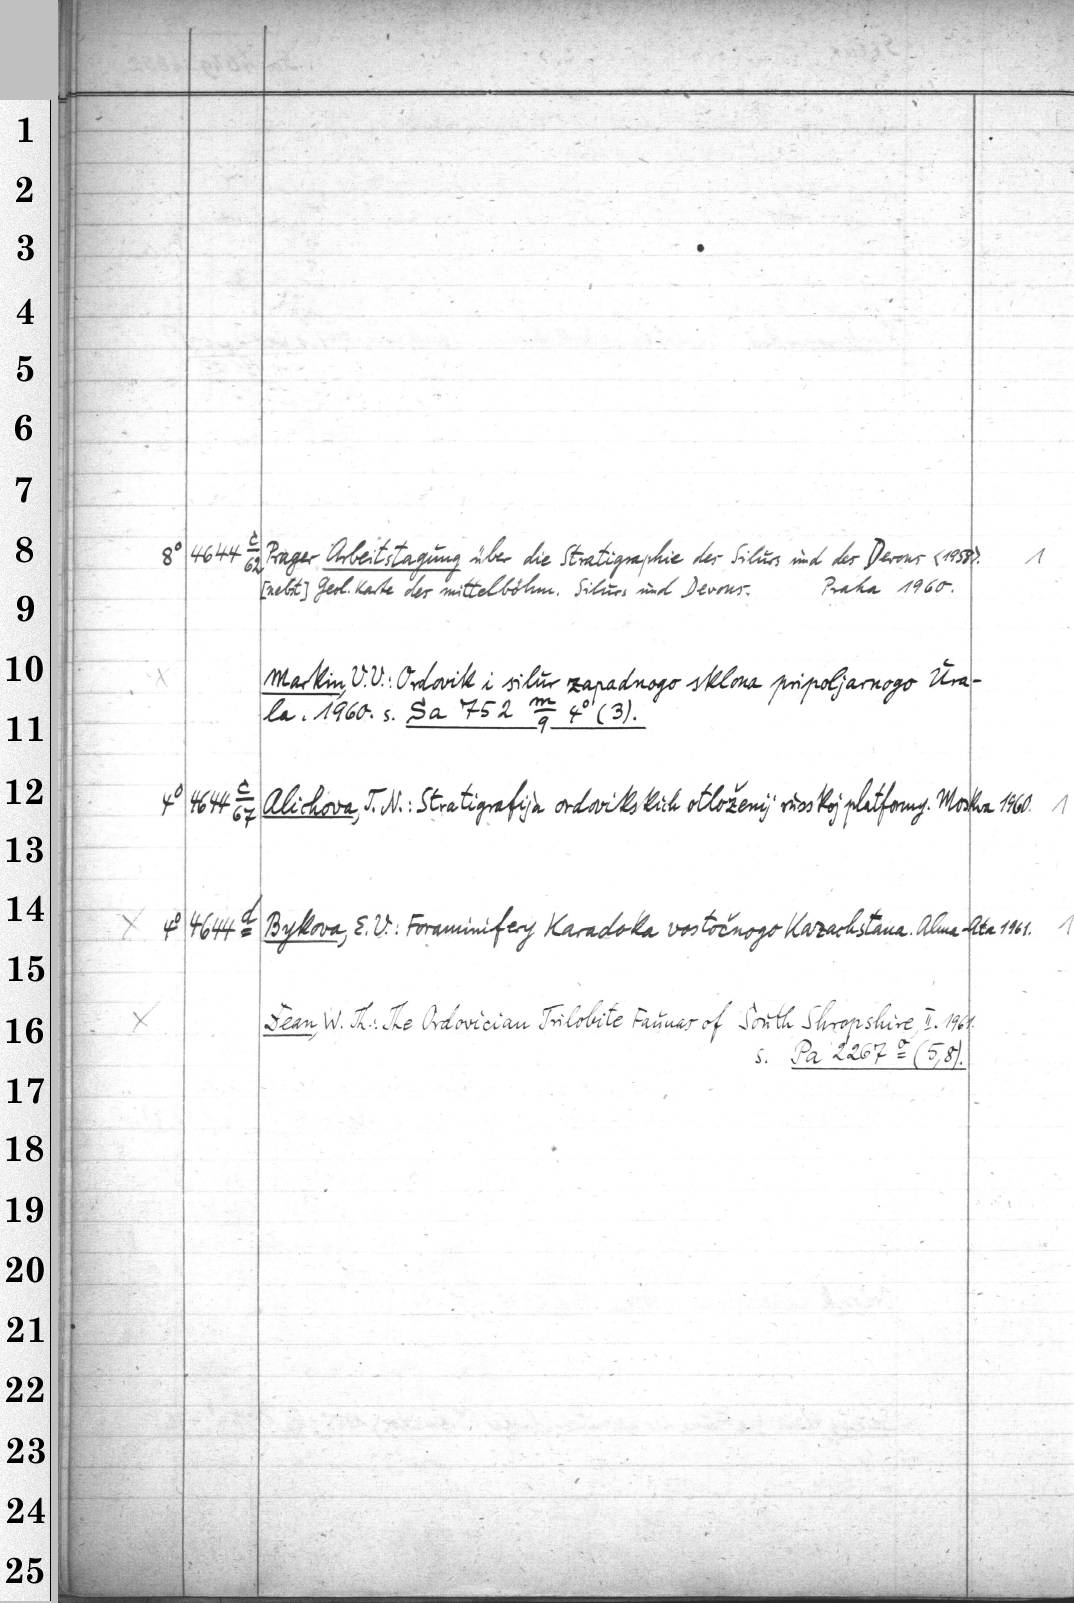 1
2
3
4
5
6
7
8
8° 4644 c/62 Prager Arbeitstagung über die Stratigraphie des Silurs und des Devons <1958>. 1
[nebst] Geol. Karte des mittelböhm. Silurs und Devons. Praha 1960.
9
10
Markin, V.V.: Ordovik i silur zapadnogo sklona pripoljarnogo Ura-
la. 1960. s. Sa 752 m/9 4° (3).
11
12
4° 4644 c/67 Alichova, T.N.: Stratigrafija ordovikskich otloženij russkoj platformy. Moskva 1960. 1
13
14
X 4° 4644 d Bykova, E.V.: Foraminifery Karadoka vostočnogo Kazachstana. Alma-Ata 1961. 1
15
16
X Dean, W. Th.: The Ordovician Trilobite Faunas of South Shropshire, II. 1961.
s. Pa 2267 a (5,8).
17
18
19
20
21
22
23
24
25